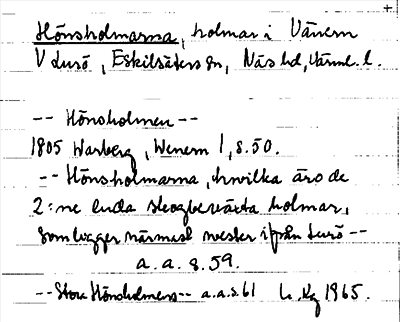 Hönsholmarna, holmar i Vänern
V Lurö, Eskilsäters sn, Näs hd, Värml. l.
-- Hönsholmen --
1805 Warberg, Wenern 1, s. 50.
-- Hönsholmarna, hwilka äro de
2:ne enda skogbewäxta holmar,
som ligger närmast wester ifrån Lurö --
a. a. s. 59.
-- Stora Hönsholmen -- a. a. s. 61 1965.